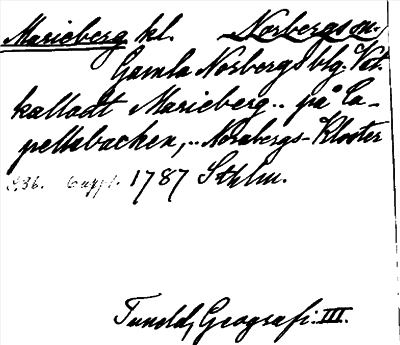 Marieberg kl. Norbergs sn.
Gamla Norbergs blg. Vet.
kalladt Marieberg.. på Ca-
pellsbacken,.. Norabergs-Kloster
S. 36. 6 uppl. 1787 Sthlm.
Tuneld, Geografi. III.